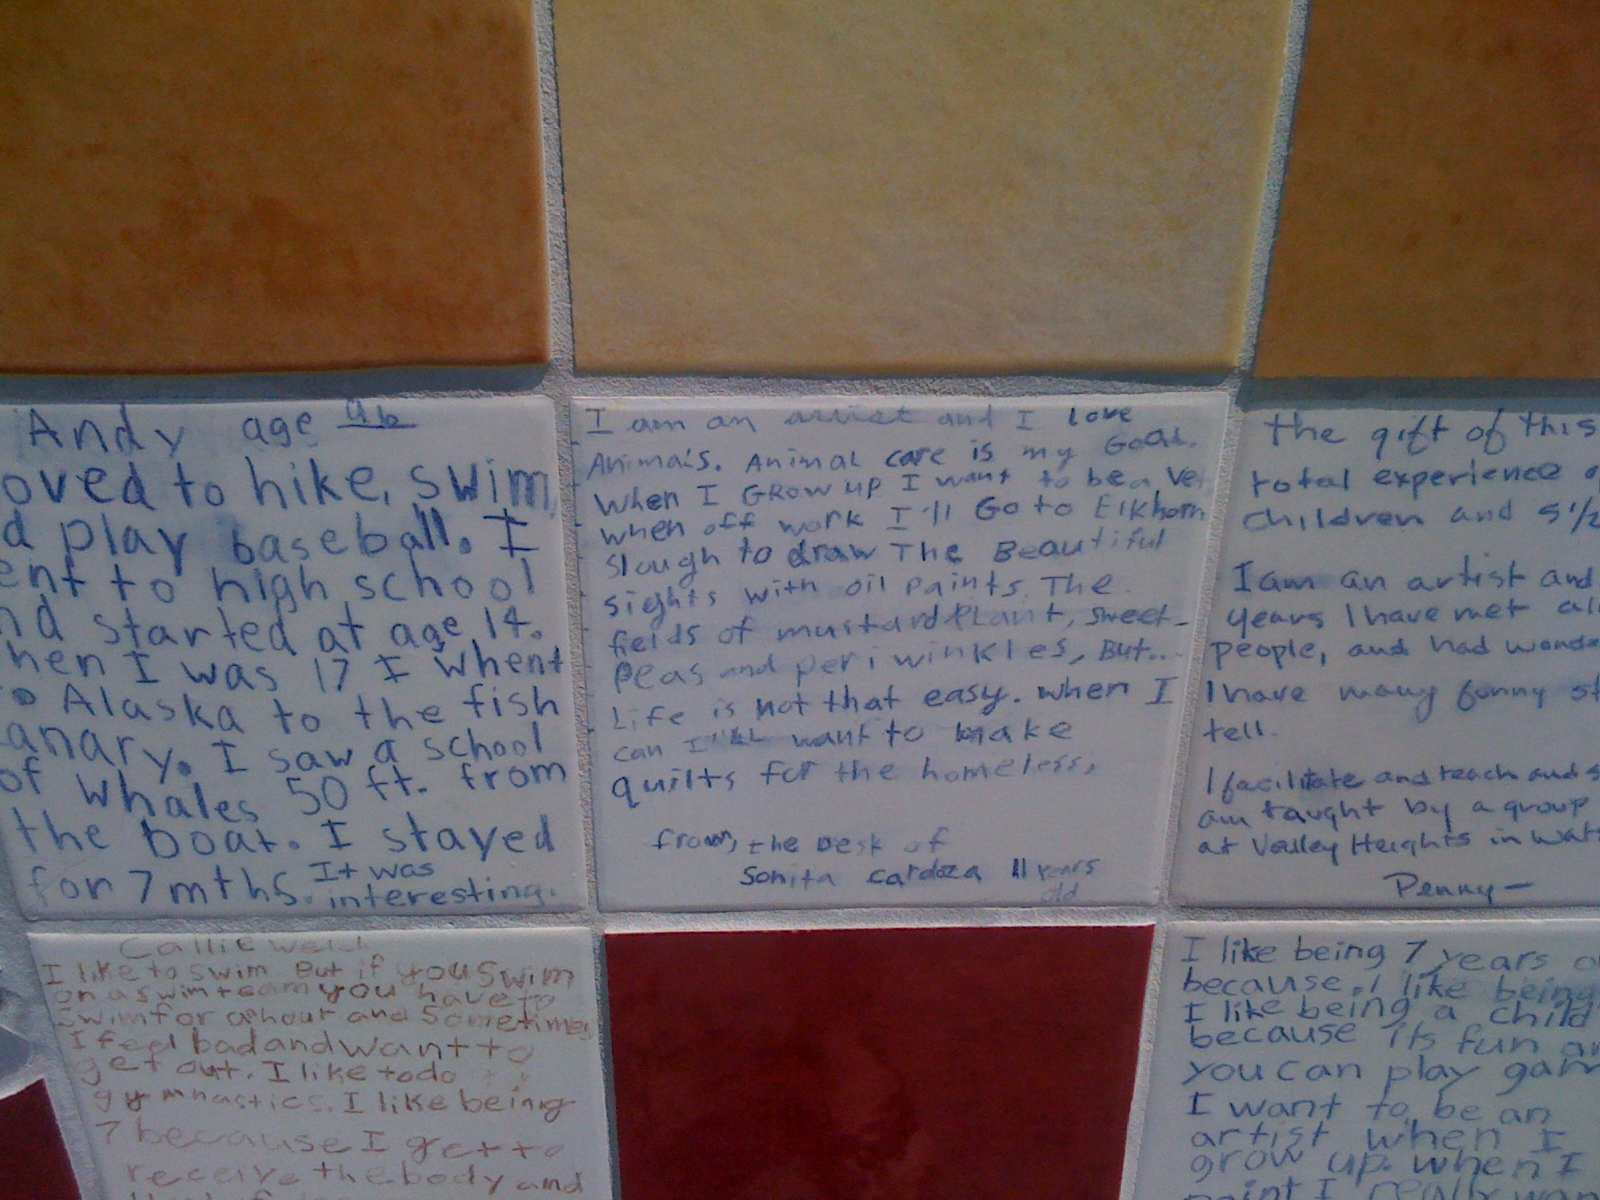 Andy age
oved to hike, swim,
d play baseball. I
ent to high school
nd started at age 14.
hen I was 17 I whent
o Alaska to the fish
anary. I saw a school
of whales 50 ft. from
the boat. I stayed
for 7 mths. It was
interesting.
I am an artist and I love
Animals. Animal care is my Goal.
When I GROW up I want to be a ve
when off work I'll Go to Elkhorn
Slough to draw The Beautiful
sights with oil paints. The
feilds of mustard Plant, sweet-
Peas and periwinkles, But...
Life is not that easy. when I
can I'll want to make
quilts for the homeless,
from, the Desk of
Sonita Cardoza 11 years
old
the gift of this
total experience o
children and 5 1/2
I am an artist and
years I have met al
people, and had wond
I have many funny st
tell.
I facilitate and teach and s
am taught by a group
at Valley Heights in Wat
Penny-
Callie Welch
I like to swim But if you swim
on a swim team you have to
swim for a hour and Sometimes
I feel bad and want to
get out. I like to do
gymnastics. I like being
7 because I get to
receive the body and
I like being 7 years o
because. I like being
I like being a child
because its fun an
you can play gam
I want to be an
artist when I
grow up. when I
paint I really